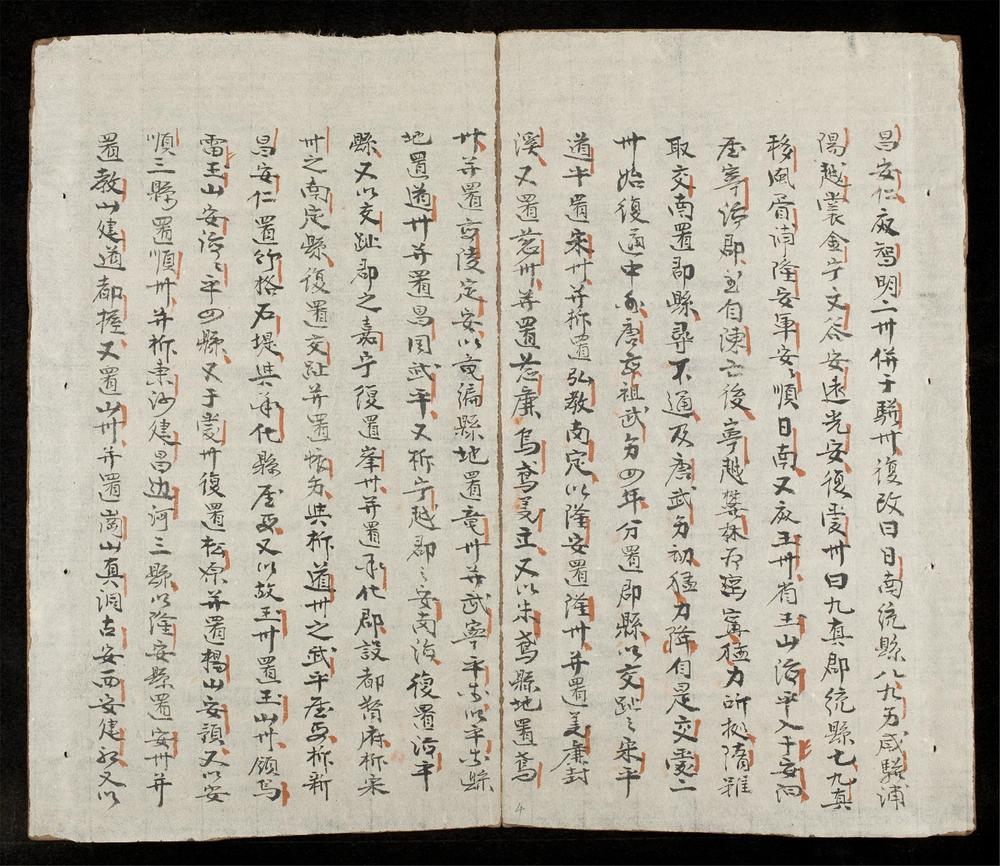 昌安仁廢智明二州併于驩州復改曰日南統縣八九万咸驩浦
陽越裳金宁文谷安遠光安復愛州曰九真郡統縣七九真
移風胥浦隆安軍安順日南又廢玉州省玉山治平入于安
寧治郡自陳亡後寧越寧猛力所挺隋雖
取交南置郡縣尋不通及唐武刅初猛力降自是交愛二
州始復通中國唐高祖武刅四年分置郡縣以交趾之宋平
道平置宋州并析置弘教南定以隆安置隆州并置義廉封
溪又置慈州并置慈廉烏鳶義立又以朱鳶縣地置鳶
州并置高陵定安以竟編縣地置竟州并武寧平高以平高縣
地置道州并置昌国武平又析宁越郡之安南海復置治平
縣又以交趾郡之嘉宁復置峯州并置承化郡設都督府析宋
州之南定縣復置交趾并置懷刅與析道州之武平析新
昌安仁置竹格石堤與承化縣又以故玉州置玉山州領烏
雷玉山安海海平四縣又于愛州復置松原并置楊山安預又以安
順三縣置順州并析東河建昌边河三縣以隆安縣置安州并
置教山建道都握又置山州并置崗山真潤古安西安建初又以
4